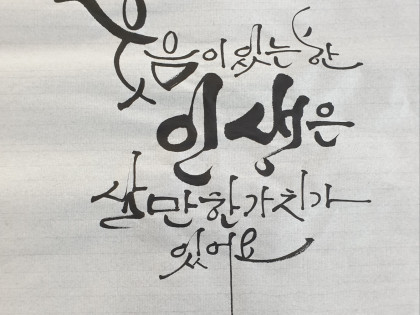 웃음이 있는 한
인생은
살만한 가치가
있어요